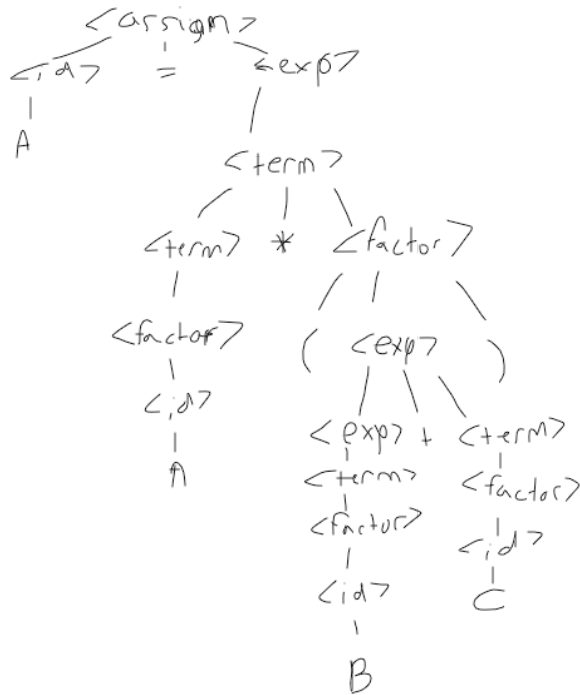 <assign>
<id> = <exp>
A
<term>
<term> * <factor>
<factor> ( <exp> )
<id>
<exp> + <term>
A
<term>
<factor>
<factor>
<id>
<id>
C
B